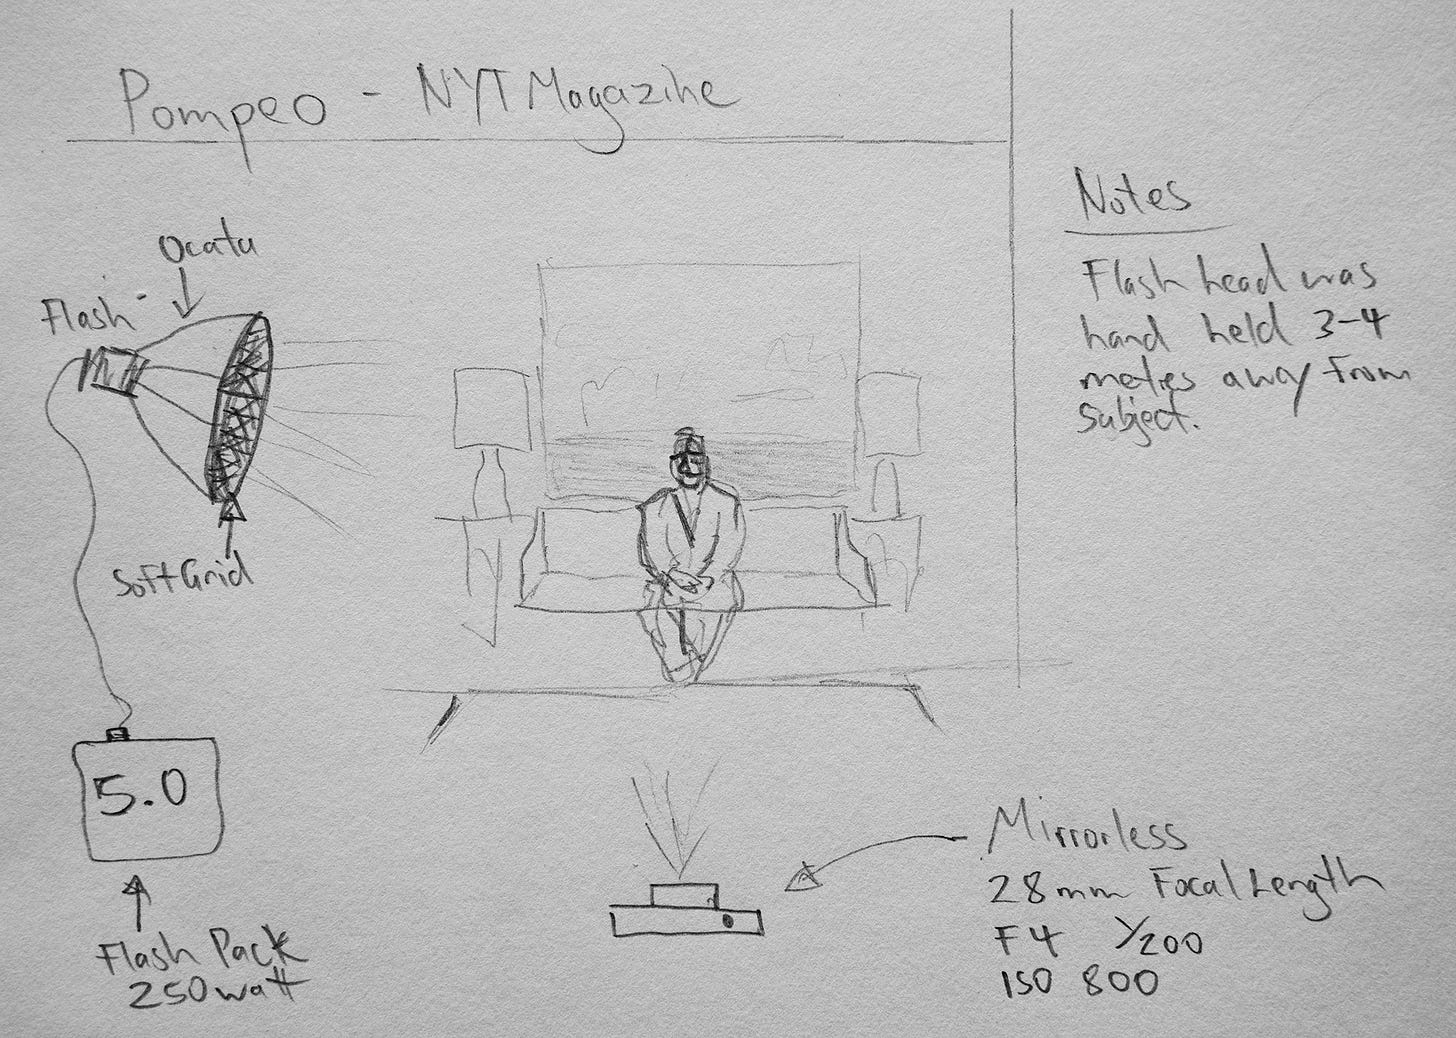 Pompeo - NYT Magazine
Ocata
Flash
SoftGrid
5.0
Flash Pack
250 watt
Notes
Flash head was
hand held 3-4
metres away from
subject.
Mirrorless
28mm Focal Length
F4 1/200
ISO 800